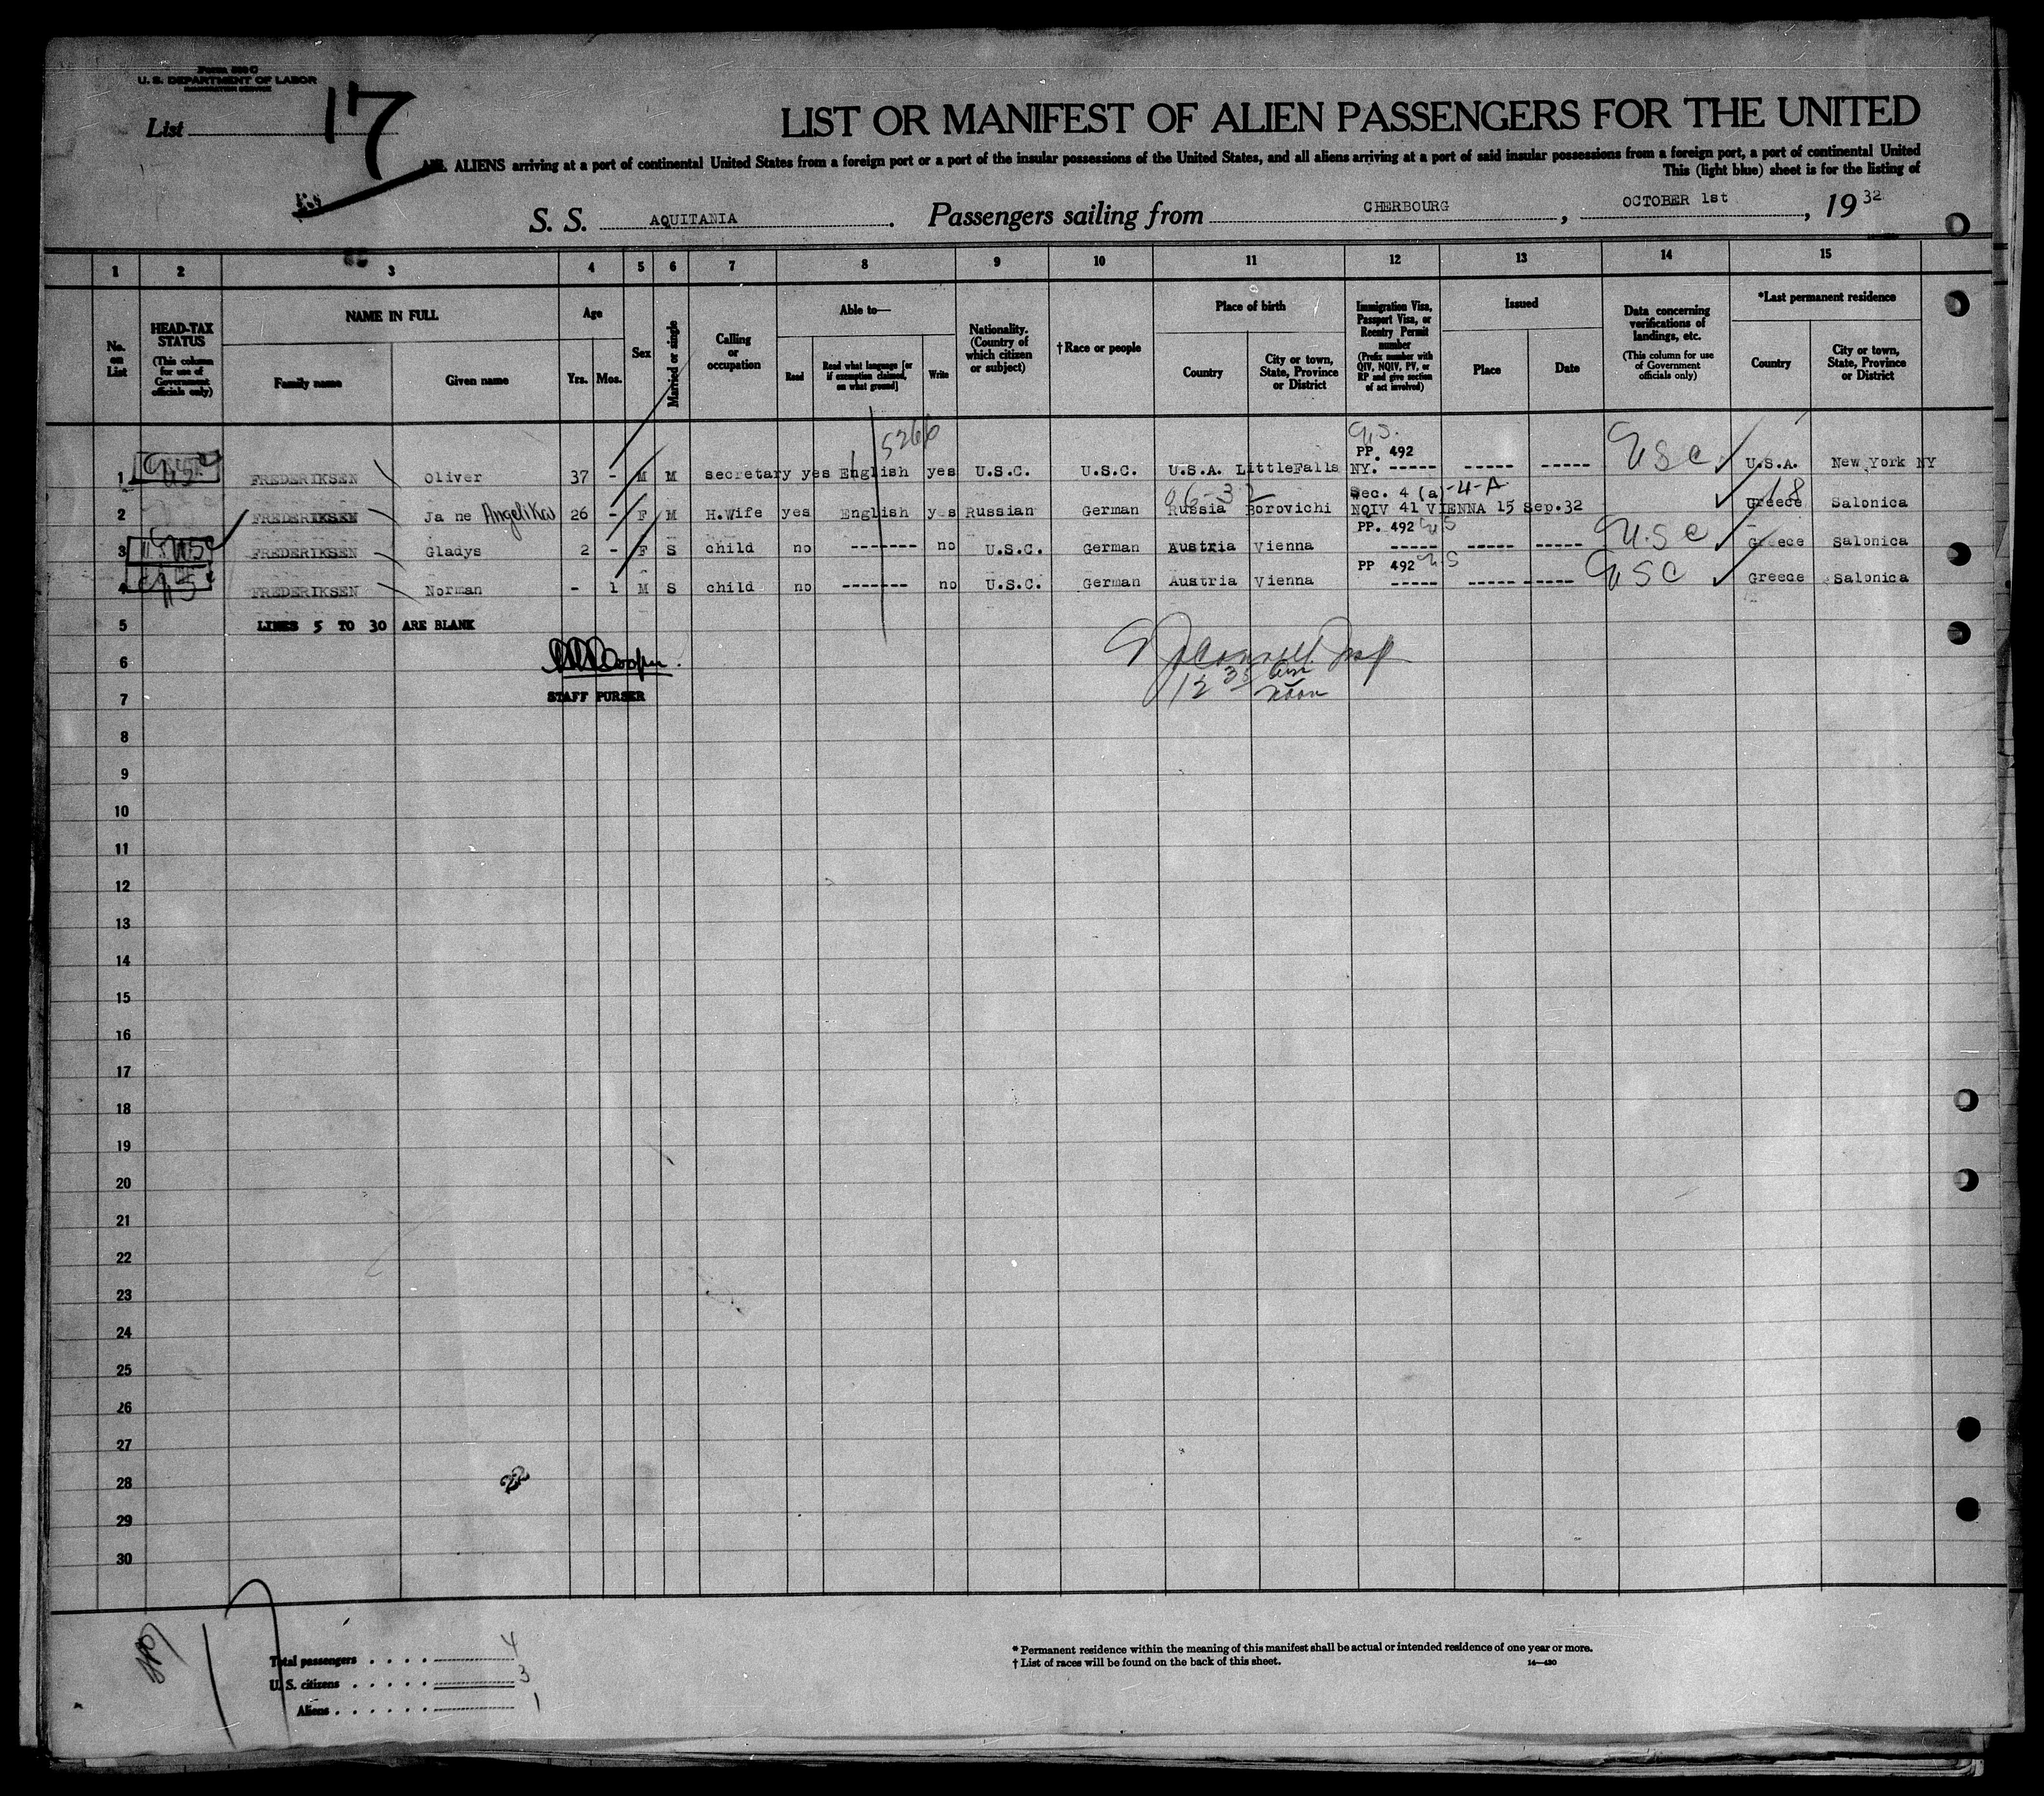 Form 500 C
U. S. DEPARTMENT OF LABOR
IMMIGRATION SERVICE
List 17
LIST OR MANIFEST OF ALIEN PASSENGERS FOR THE UNITED
ALL ALIENS arriving at a port of continental United States from a foreign port or a port of the insular possessions of the United States, and all aliens arriving at a port of said insular possessions from a foreign port, a port of continental United
This (light blue) sheet is for the listing of
S. S. AQUITANIA. Passengers sailing from CHERBOURG, OCTOBER 1st, 19 32
1 2 3 4 5 6 7 8 9 10 11 12 13 14 15
No. on List
HEAD-TAX STATUS
(This column for use of Government officials only)
NAME IN FULL
Family name
Given name
Age
Yrs. Mos.
Sex
Married or single
Calling or occupation
Able to—
Read
Read what language [or if exemption claimed, on what ground]
Write
Nationality. (Country of which citizen or subject)
†Race or people
Place of birth
Country
City or town, State, Province or District
Immigration Visa, Passport Visa, or Reentry Permit number
(Prefix number with QIV, NQIV, PV, or RP and give section of act involved)
Issued
Place
Date
Data concerning verifications of landings, etc.
(This column for use of Government officials only)
*Last permanent residence
Country
City or town, State, Province or District
5266
U.S.
PP. 492
1 USC FREDERIKSEN Oliver 37 - M M secretary yes English yes U.S.C. U.S.C. U.S.A. LittleFalls NY. ----- ----- ----- USC U.S.A. New York NY
Sec. 4 (a) -4-A
2 FREDERIKSEN Ja ne Angelika 26 - F M H.Wife yes English yes Russian German Russia Borovichi NQIV 41 VIENNA 15 Sep.32 Greece Salonica
PP. 492 US
3 USC FREDERIKSEN Gladys 2 - F S child no ------- no U.S.C. German Austria Vienna ----- ----- ----- USC Greece Salonica
PP 492 US
4 USC FREDERIKSEN Norman - 1 M S child no ------- no U.S.C. German Austria Vienna ----- ----- ----- USC Greece Salonica
5 LINES 5 TO 30 ARE BLANK
6
STAFF PURSER
7
8
9
10
11
12
13
14
15
16
17
18
19
20
21
22
23
24
25
26
27
28
29
30
17
Total passengers . . . . 4
U. S. citizens . . . . . 3
Aliens . . . . . . 1
* Permanent residence within the meaning of this manifest shall be actual or intended residence of one year or more.
† List of races will be found on the back of this sheet.
14—420